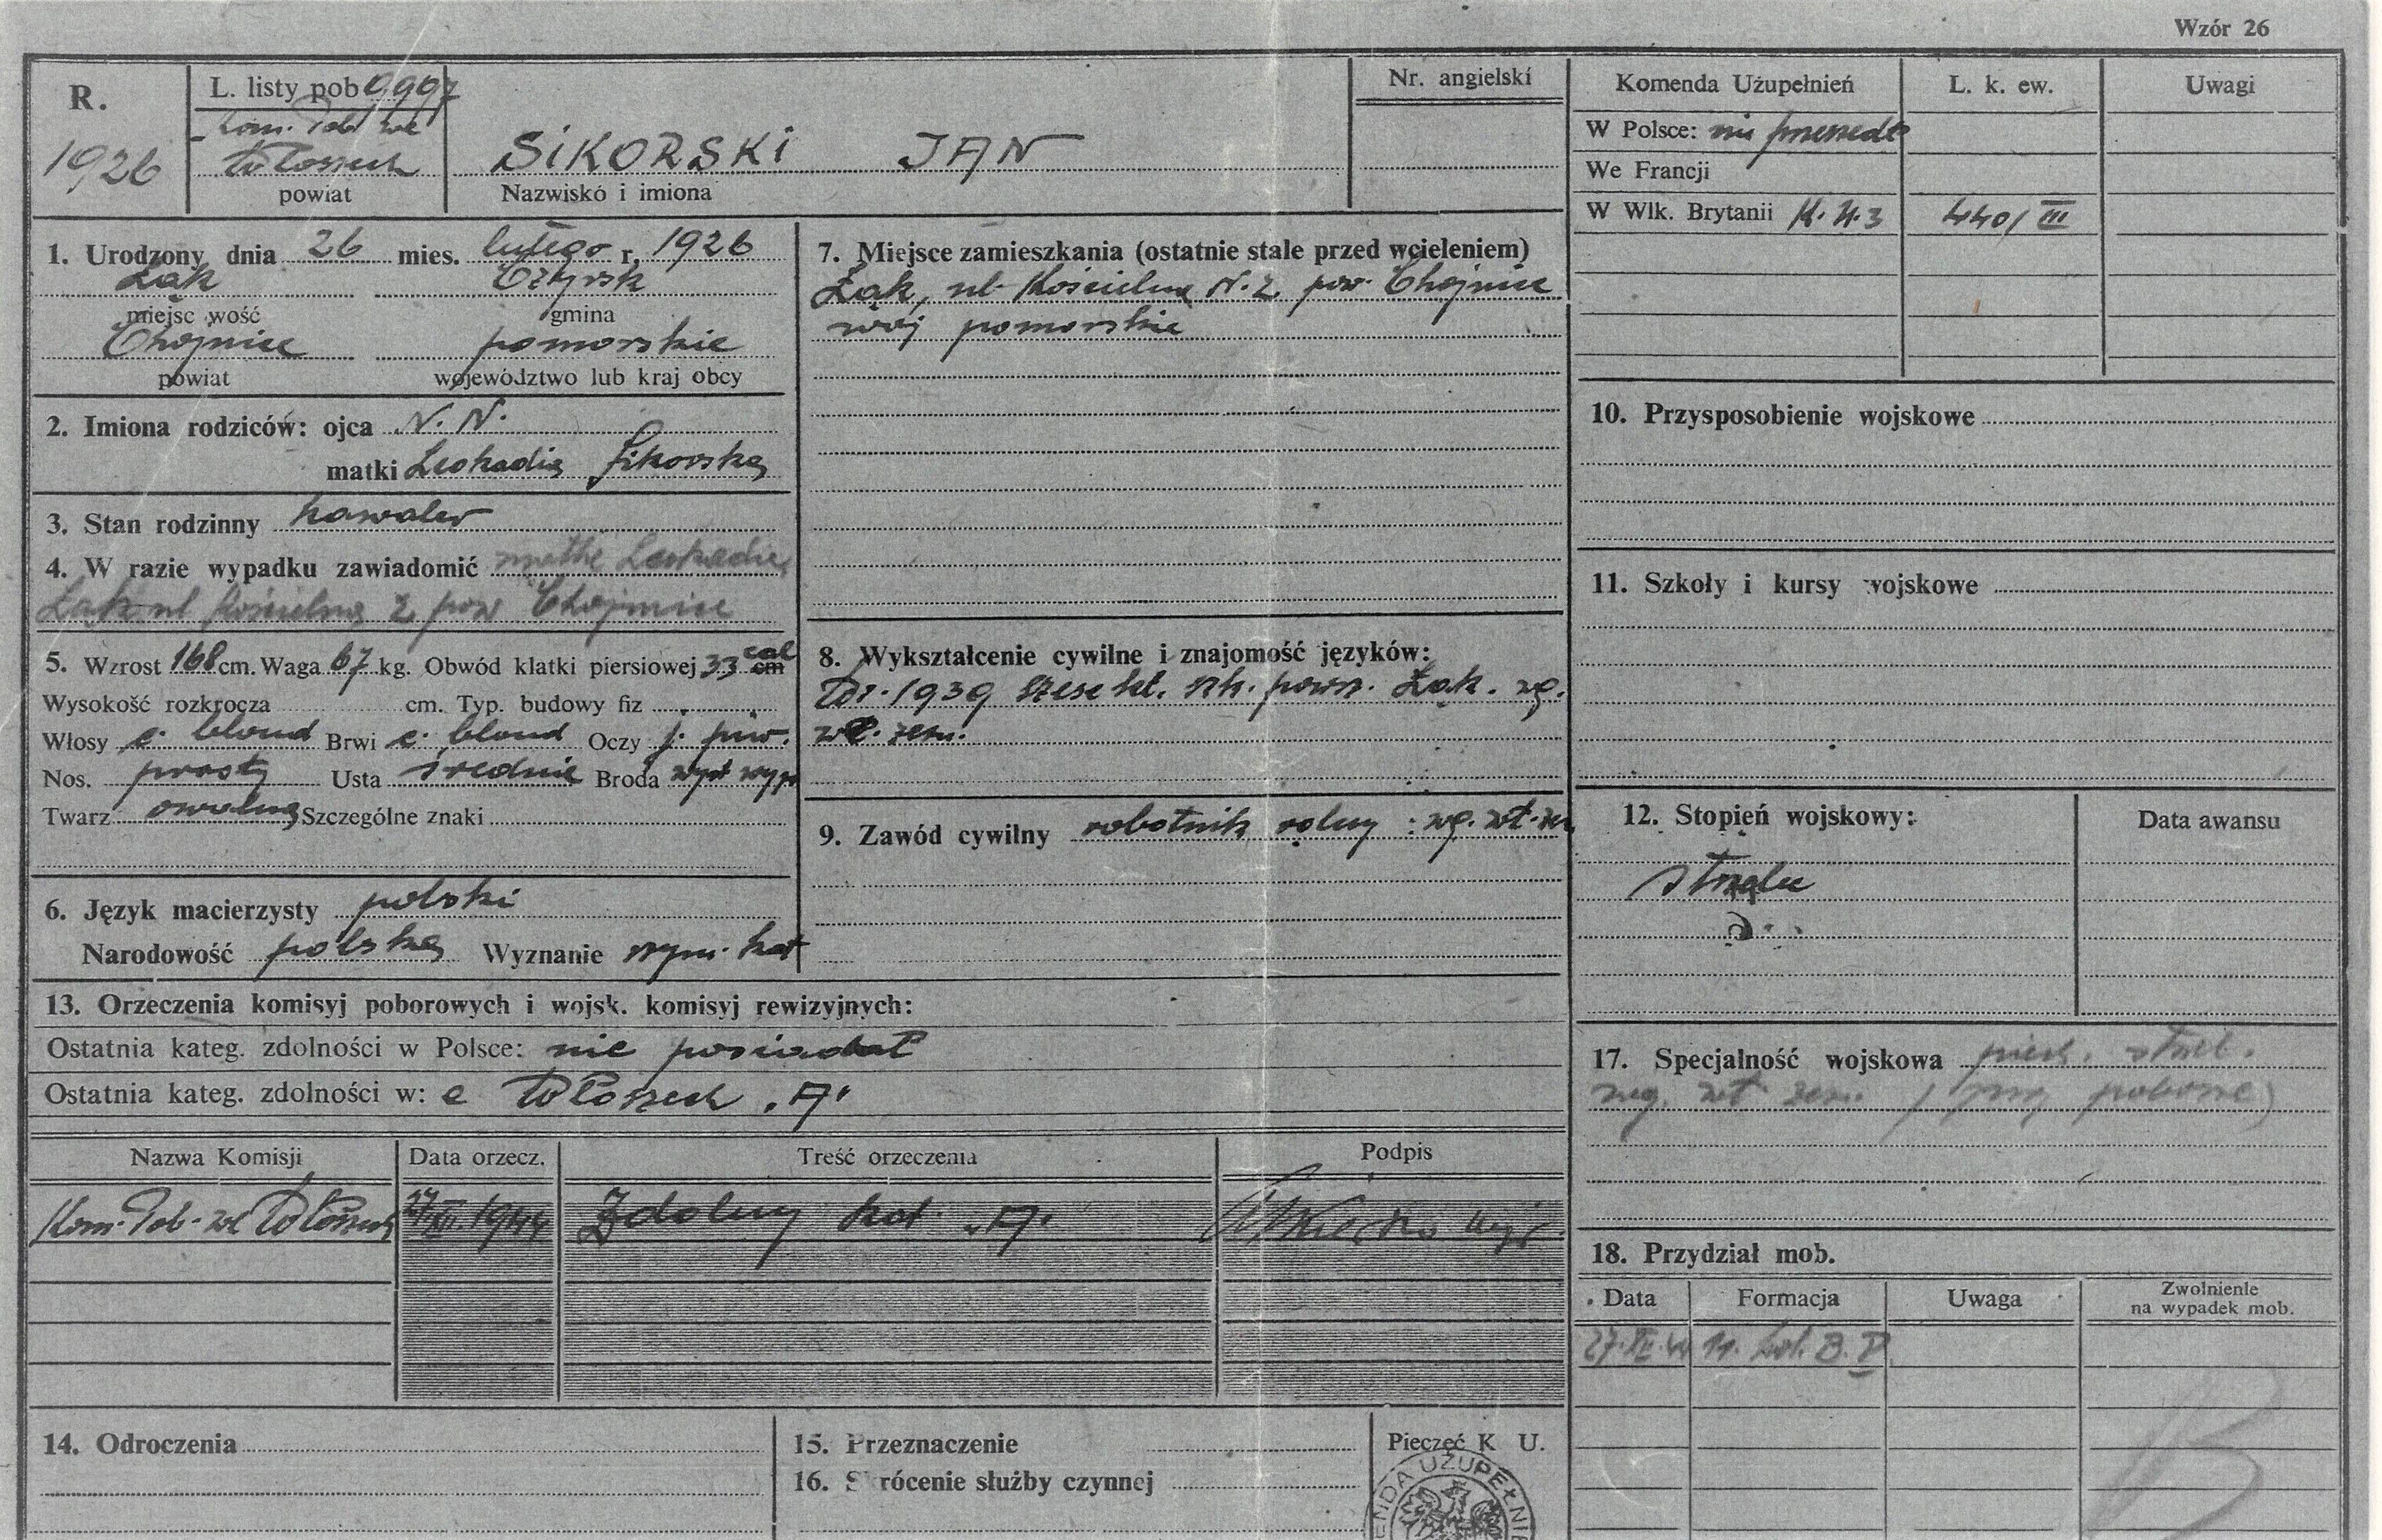 Wzór 26
R. 1926
L. listy pob 0907
Kom. Pob. we
Włoszech
powiat
SIKORSKI JAN
Nazwisko i imiona
Nr. angielski
Komenda Użupełnień L. k. ew. Uwagi
W Polsce: nie
We Francji
W Wlk. Brytanii K.U.3 440/III
1. Urodzony dnia 26 mies. lutego r. 1926
Łąk Czersk
miejsc wość gmina
Chojnice pomorskie
powiat województwo lub kraj obcy
2. Imiona rodziców: ojca N. N.
matki Leokadia Sikorska
3. Stan rodzinny kawaler
4. W razie wypadku zawiadomić matkę Leokadię
Łąk ul Kościelna 2 pow Chojnice
5. Wzrost 168 cm. Waga 67 kg. Obwód klatki piersiowej 33 cal cm
Wysokość rozkrocza cm. Typ. budowy fiz
Włosy c. blond Brwi c. blond Oczy j. piw.
Nos. prosty Usta średnie Broda
Twarz owalna Szczególne znaki
6. Język macierzysty polski
Narodowość polska Wyznanie rzym. kat
7. Miejsce zamieszkania (ostatnie stale przed wcieleniem)
Łąk, ul. Kościelna N. 2 pow. Chojnice
woj pomorskie
8. Wykształcenie cywilne i znajomość języków:
W r. 1939 sześć kl. szk. pows. Łąk. wg.
wł. zezn.
9. Zawód cywilny robotnik rolny : wg. wł. zezn
10. Przysposobienie wojskowe
11. Szkoły i kursy wojskowe
12. Stopień wojskowy: Data awansu
strzelec
13. Orzeczenia komisyj poborowych i wojsk. komisyj rewizyjnych:
Ostatnia kateg. zdolności w Polsce: nie posiadał
Ostatnia kateg. zdolności w: e Włoszech „A"
Nazwa Komisji Data orzecz. Treść orzeczenia Podpis
Kom. Pob. we Włoszech 1944 Zdolny kat. „A"
14. Odroczenia
15. Przeznaczenie
16. Skrócenie służby czynnej
Pieczęć K U.
ENDA UZUPEŁNIE
17. Specjalność wojskowa piech. strzel.
wg. wł. zezn. (przy poborze)
18. Przydział mob.
Data Formacja Uwaga Zwolnienie
na wypadek mob.
27.XI.44 B.